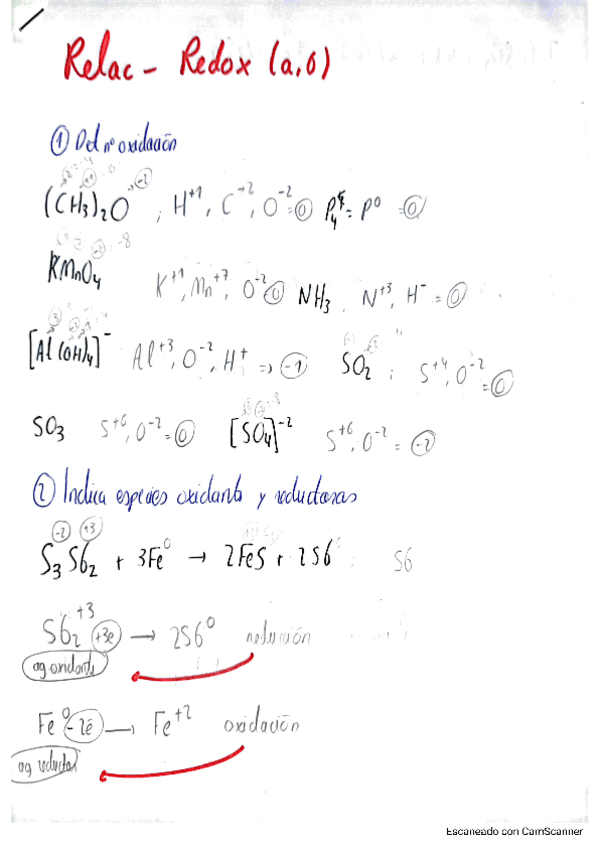 Relac - Redox (a,b)
① Det nº oxidación
(CH3)2O ; H+1, C+2, O-2 = 0 P4 = P0 = 0
KMnO4 K+1, Mn+7, O-2 0 NH3, N+3, H- = 0
[Al(OH)4]- Al+3, O-2, H+ => -1 SO2 ; S+4, O-2 = 0
SO3 S+6, O-2 = 0 [SO4]-2 S+6, O-2 = -2
② Indica especies oxidants y reductoras
-2 +3
S3Sb2 + 3Fe0 → 2FeS + 2Sb Sb
Sb2+3 +3e → 2Sb0 reducción
ag oxidante
Fe0 -2e → Fe+2 oxidación
ag reductor
Escaneado con CamScanner